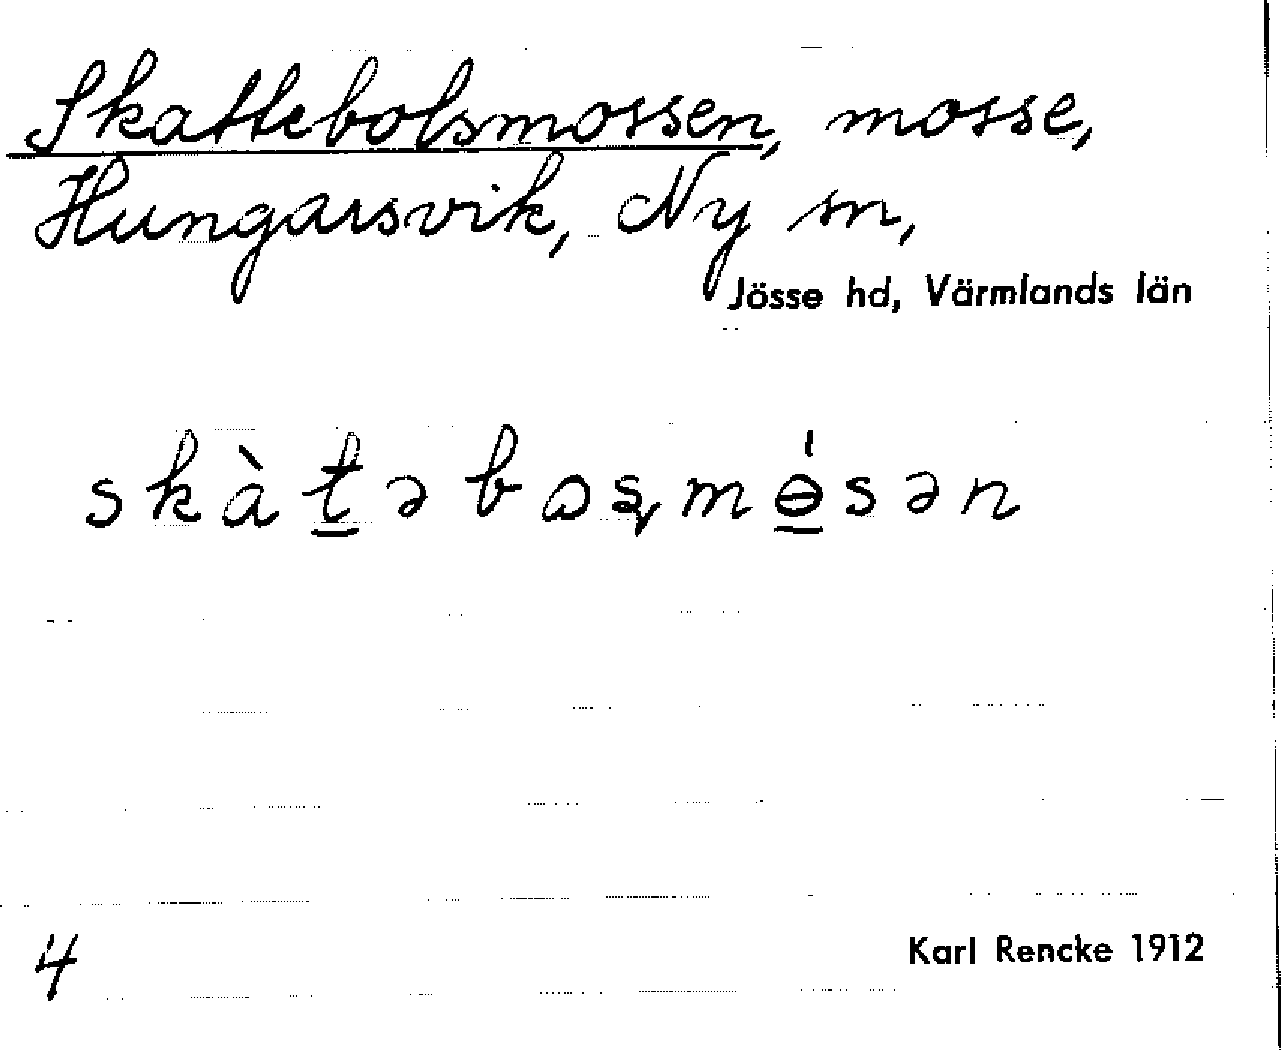 Skattebolsmossen, mosse,
Hungarsvik, Ny sn,
Jösse hd, Värmlands län
skàt̲əbɷʂmɵ̲́sən
4
Karl Rencke 1912